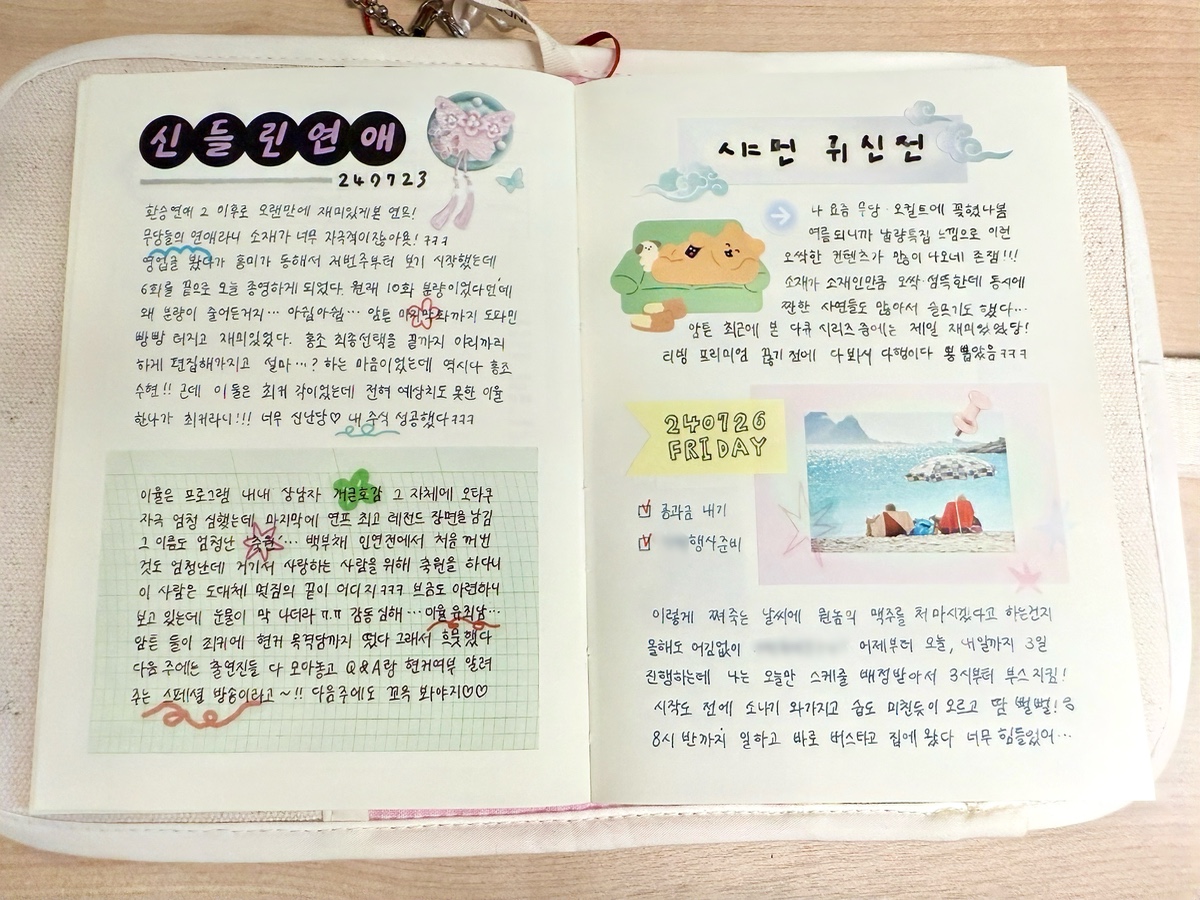 신들린연애
240723
환승연애 2 이후로 오랜만에 재미있게본 연프!
무당들의 연애라니 소재가 너무 자극적이잖아욧! ㅋㅋㅋ
영업글 봤다가 흥미가 동해서 저번주부터 보기 시작했는데
6회를 끝으로 오늘 종영하게 되었다. 원래 10화 분량이었다던데
왜 분량이 줄어든거지… 아쉽아쉽… 암튼 마지막화까지 도파민
빵빵 터지고 재미있었다. 홍조 최종선택을 끝까지 아리까리
하게 편집해가지고 설마…? 하는 마음이었는데 역시나 홍조
수현!! 근데 이 둘은 최커 각이었는데 전혀 예상치도 못한 이율
한나가 최커라니!!! 너무 신난당♡ 내 주식 성공했다 ㅋㅋㅋ
이율은 프로그램 내내 상남자 개큰호감 그 자체에 오타쿠
자극 엄청 심했는데 마지막에 연프 최고 레전드 장면을 남김
그 이름도 엄청난 '축원'… 백부채 인연전에서 처음 꺼번
것도 엄청난데 거기서 사랑하는 사람을 위해 축원을 하다니
이 사람은 도대체 멋짐의 끝이 어디지 ㅋㅋㅋ 브금도 아련하니
보고 있는데 눈물이 막 나더라 ㅠㅠ 감동 심해… 이율 유죄남…
암튼 둘이 최커에 현커 목격담까지 떴다 그래서 흐뭇했다
다음 주에는 출연진들 다 모아놓고 Q&A랑 현커여부 알려
주는 스페셜 방송이라고~!! 다음주에도 꼬옥 봐야지♡♡
샤먼 귀신전
나 요즘 무당·오컬트에 꽂혔나봄
여름 되니까 납량특집 느낌으로 이런
오싹한 컨텐츠가 많이 나오네 존잼!!!
소재가 소재인만큼 오싹 섬뜩한데 동시에
짠한 사연들도 많아서 슬프기도 했다…
암튼 최근에 본 다큐 시리즈 중에는 제일 재미있었당!
티빙 프리미엄 끊기 전에 다 봐서 다행이다 뽕 뽑았음 ㅋㅋㅋ
240726
FRIDAY
공과금 내기
행사준비
이렇게 쪄 죽는 날씨에 뭔놈의 맥주를 처 마시겠다고 하는건지
올해도 어김없이 어제부터 오늘, 내일까지 3일
진행하는데 나는 오늘만 스케줄 배정받아서 3시부터 부스지킴!
시작도 전에 소나기 와가지고 습도 미친듯이 오르고 땀 뻘뻘!
8시 반까지 일하고 바로 버스타고 집에 왔다 너무 힘들었어…